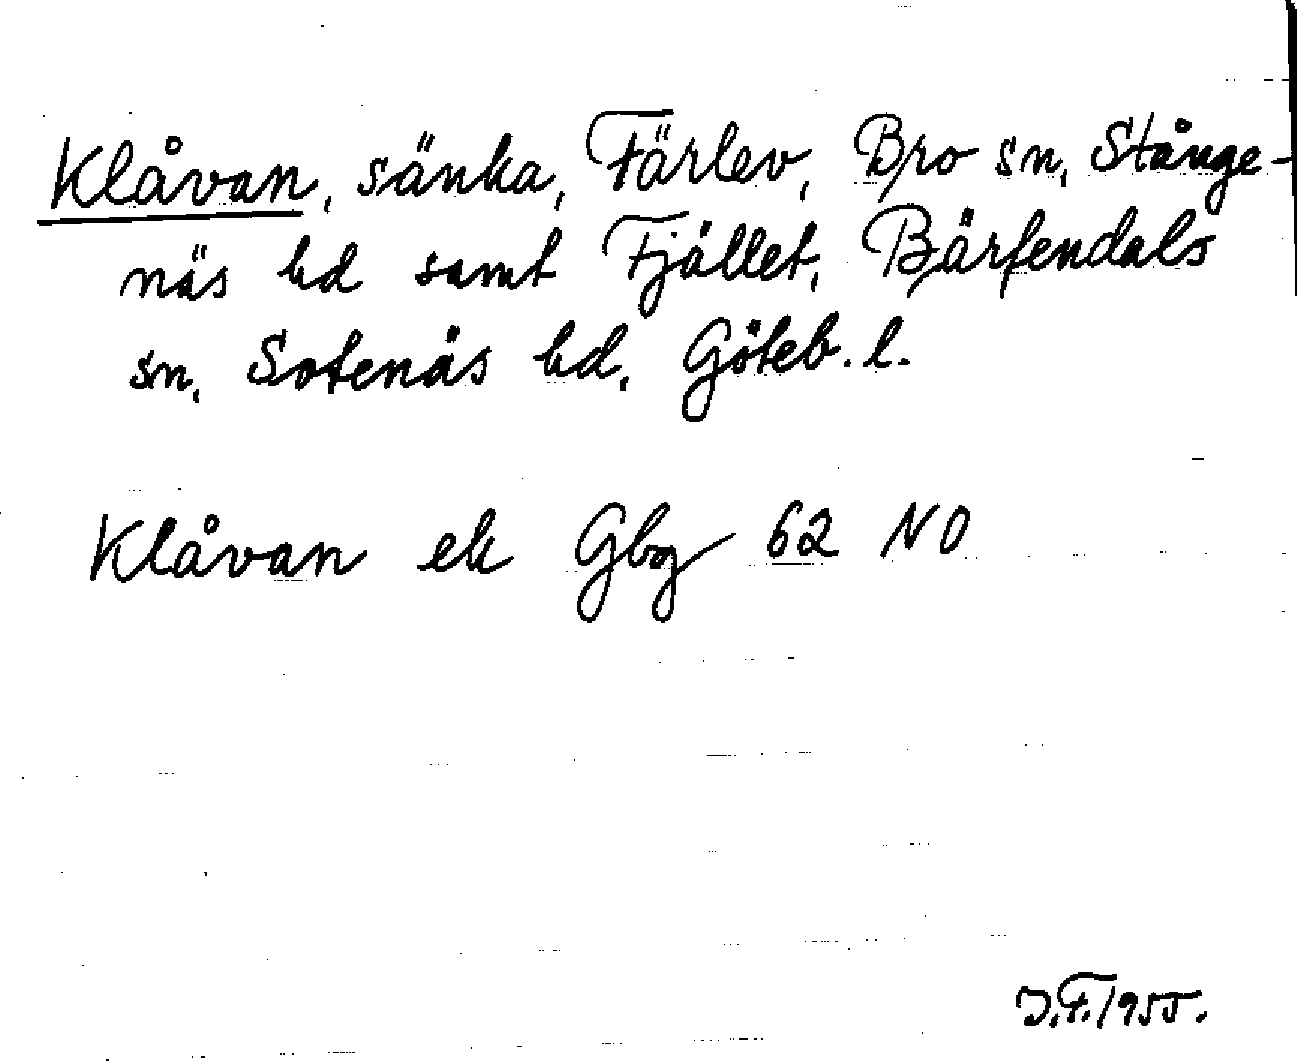 Klåvan, sänka, Färlev, Bro sn, Stånge-
näs hd samt Fjället, Bärfendals
sn, Sotenäs hd, Göteb. l.
Klåvan ek Gbg 62 NO
J.F. 1955.